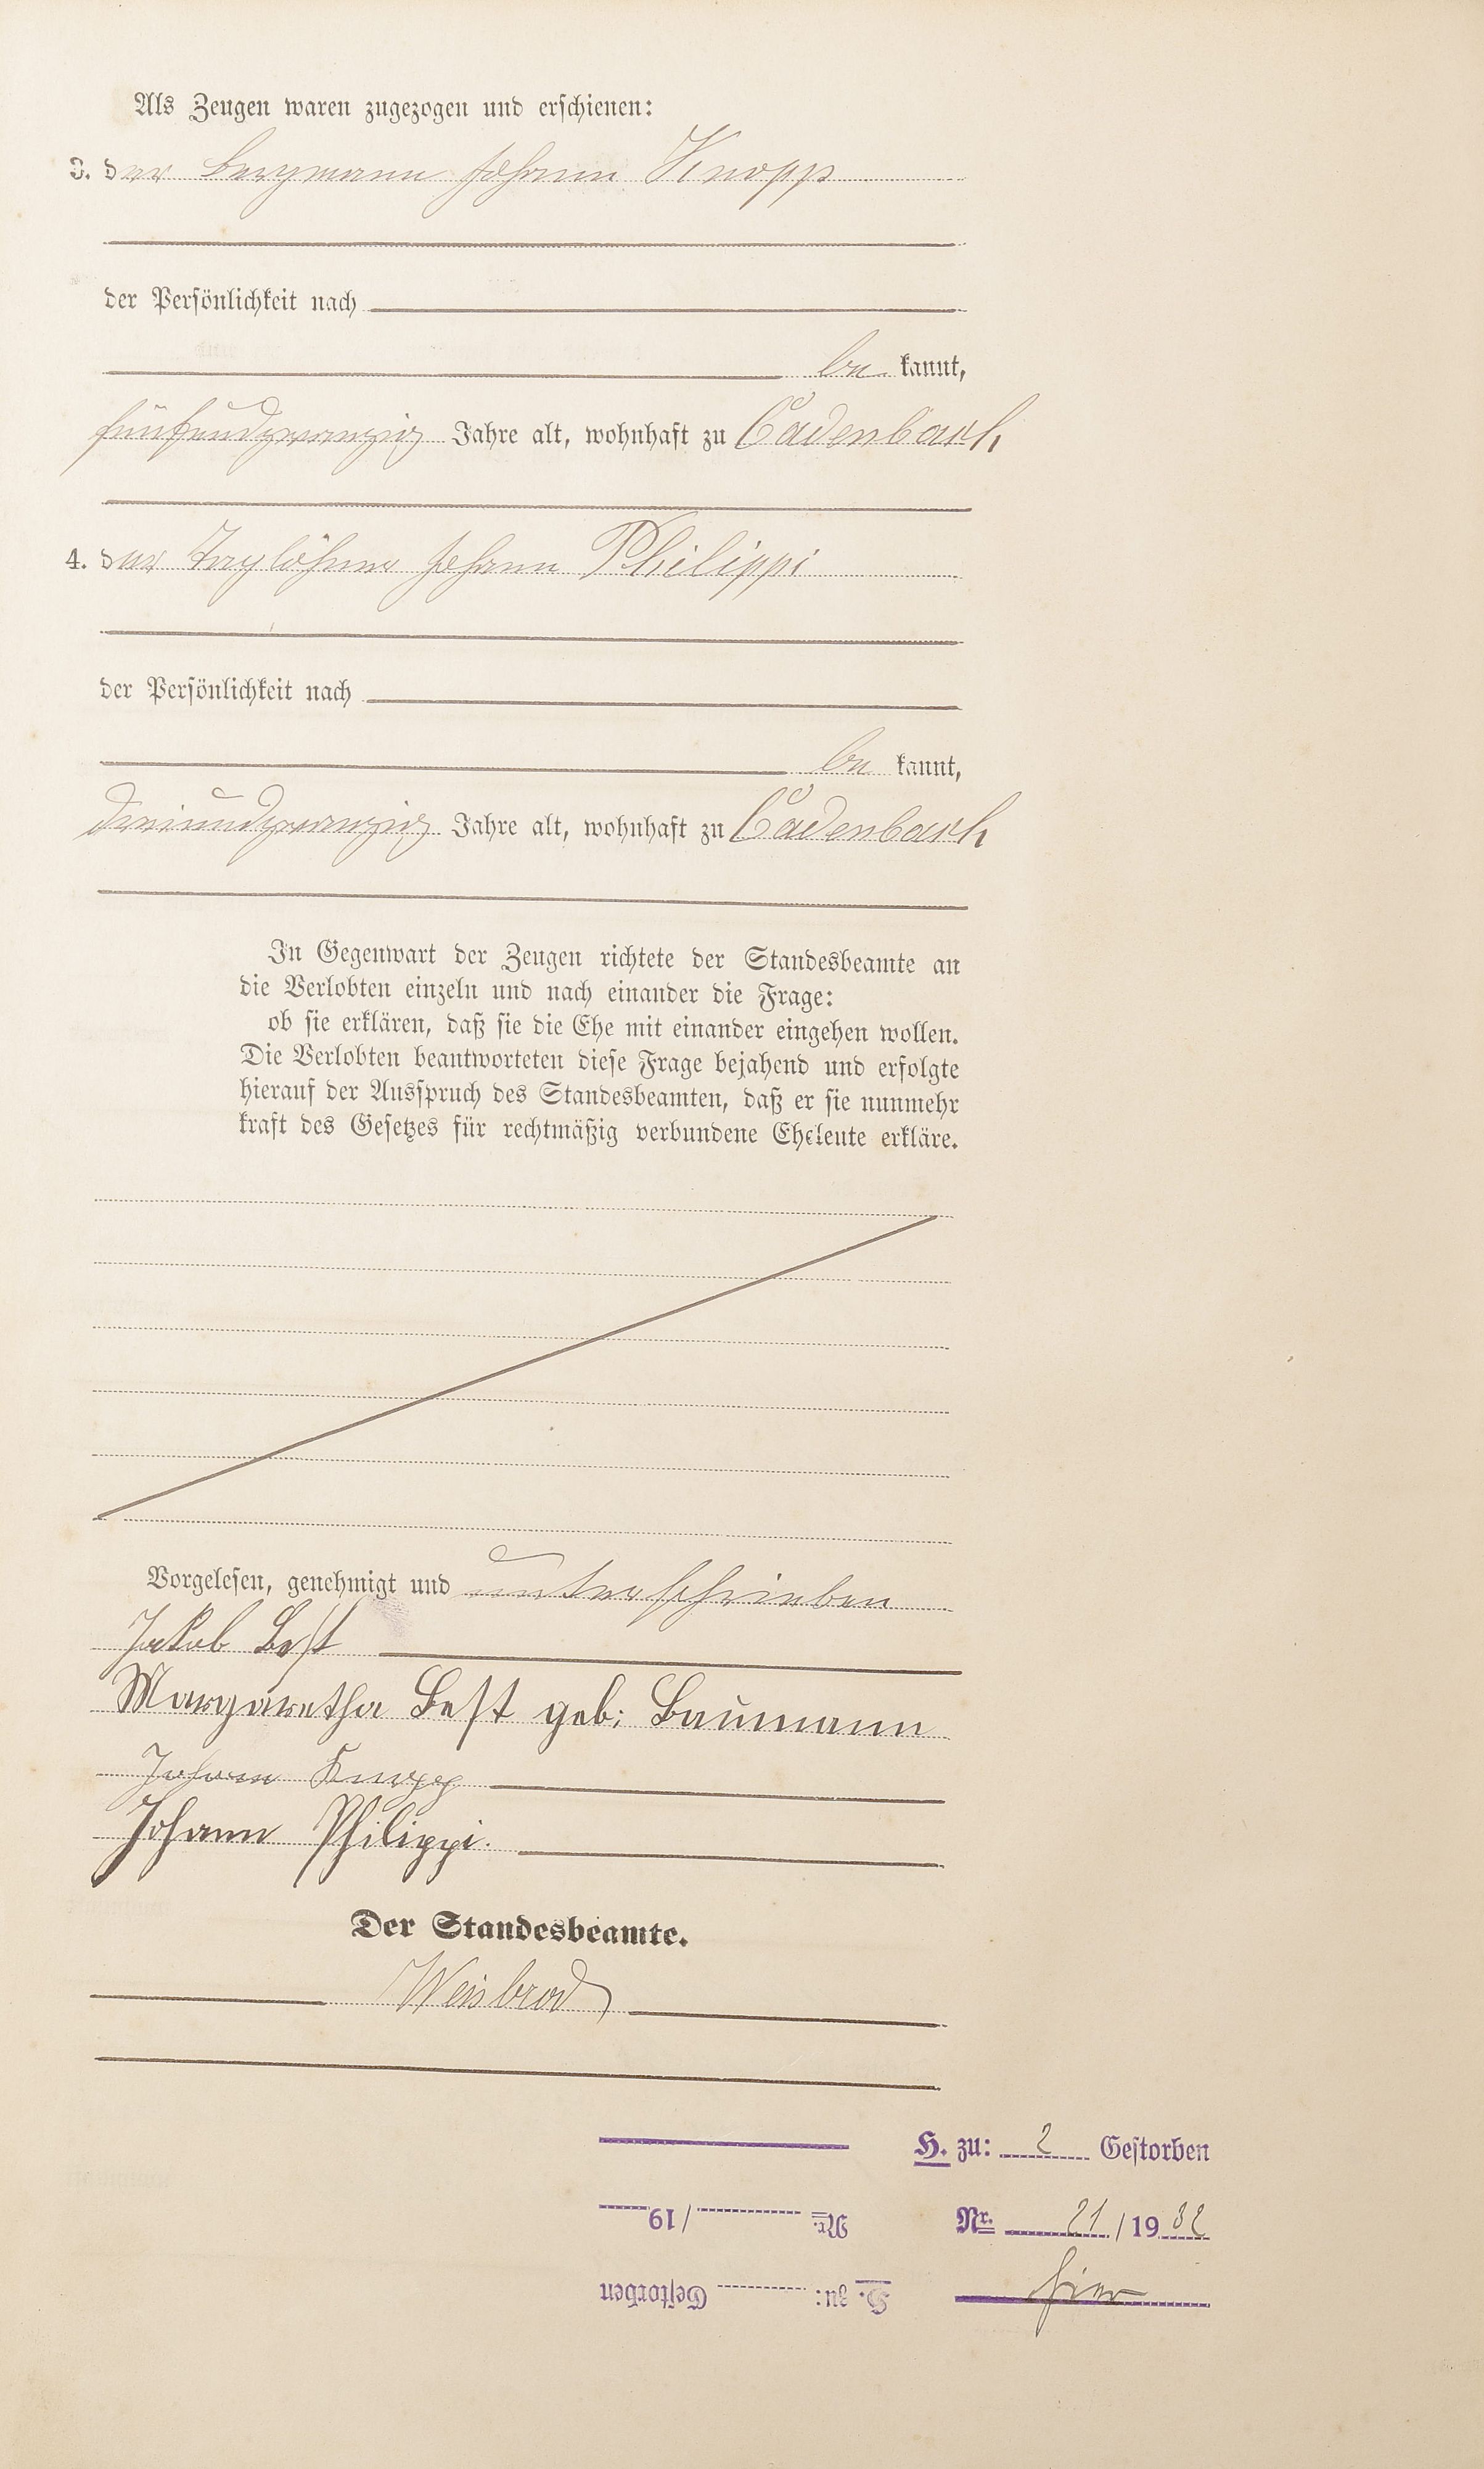 Als Zeugen waren zugezogen und erschienen:
3. der Bergmann Johann Knopp
der Persönlichkeit nach
be kannt,
fünfundzwanzig Jahre alt, wohnhaft zu Cadenbach
4. der Taglöhner Johann Philippi
der Persönlichkeit nach
be kannt,
dreiundzwanzig Jahre alt, wohnhaft zu Cadenbach
In Gegenwart der Zeugen richtete der Standesbeamte an
die Verlobten einzeln und nach einander die Frage:
ob sie erklären, daß sie die Ehe mit einander eingehen wollen.
Die Verlobten beantworteten diese Frage bejahend und erfolgte
hierauf der Ausspruch des Standesbeamten, daß er sie nunmehr
kraft des Gesetzes für rechtmäßig verbundene Eheleute erkläre.
Vorgelesen, genehmigt und unterschrieben
Jakob Best
Margaretha Best geb: Baumann
Johann Knopp
Johann Philippi.
Der Standesbeamte.
Weisbrod
H. zu: 2 Gestorben
Nr. 21 / 1932
hier
H. zu: Gestorben
Nr. / 19